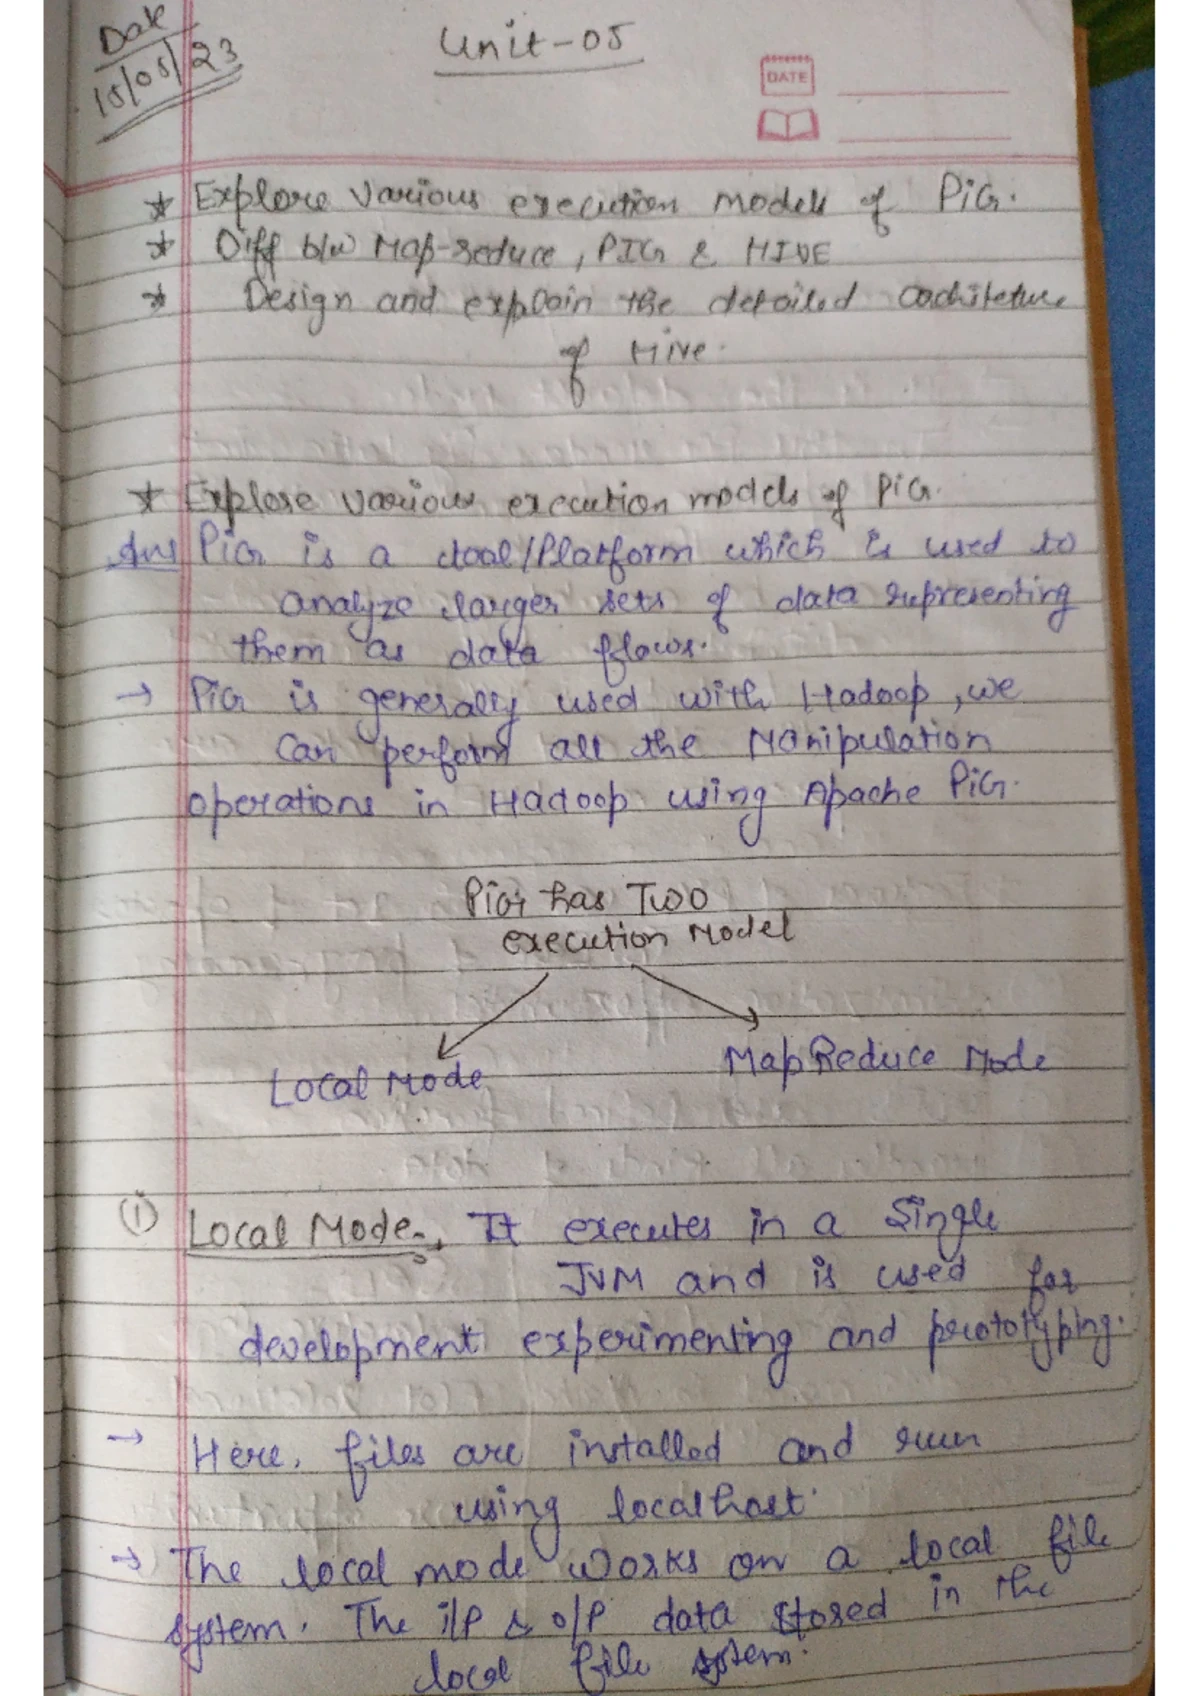 Date
15/05/23
Unit-05
DATE
* Explore various execution models of PiG.
* Diff b/w Map-reduce, PIG & HIVE
* Design and explain the detailed architeture
of Hive.
* Explore various execution models of PiG.
Ans PiG is a tool/Platform which is used to
analyze larger sets of data representing
them as data flows.
→ PiG is generally used with Hadoop, we
can perform all the Manipulation
operations in Hadoop using Apache PiG.
Pig has Two
execution Model
Local Mode
MapReduce Mode
(i) Local Mode:- It executes in a Single
JVM and is used for
development experimenting and prototyping.
→ Here, files are installed and run
using localhost.
→ The local mode works on a local file
system. The i/p & o/p data stored in the
local file system.